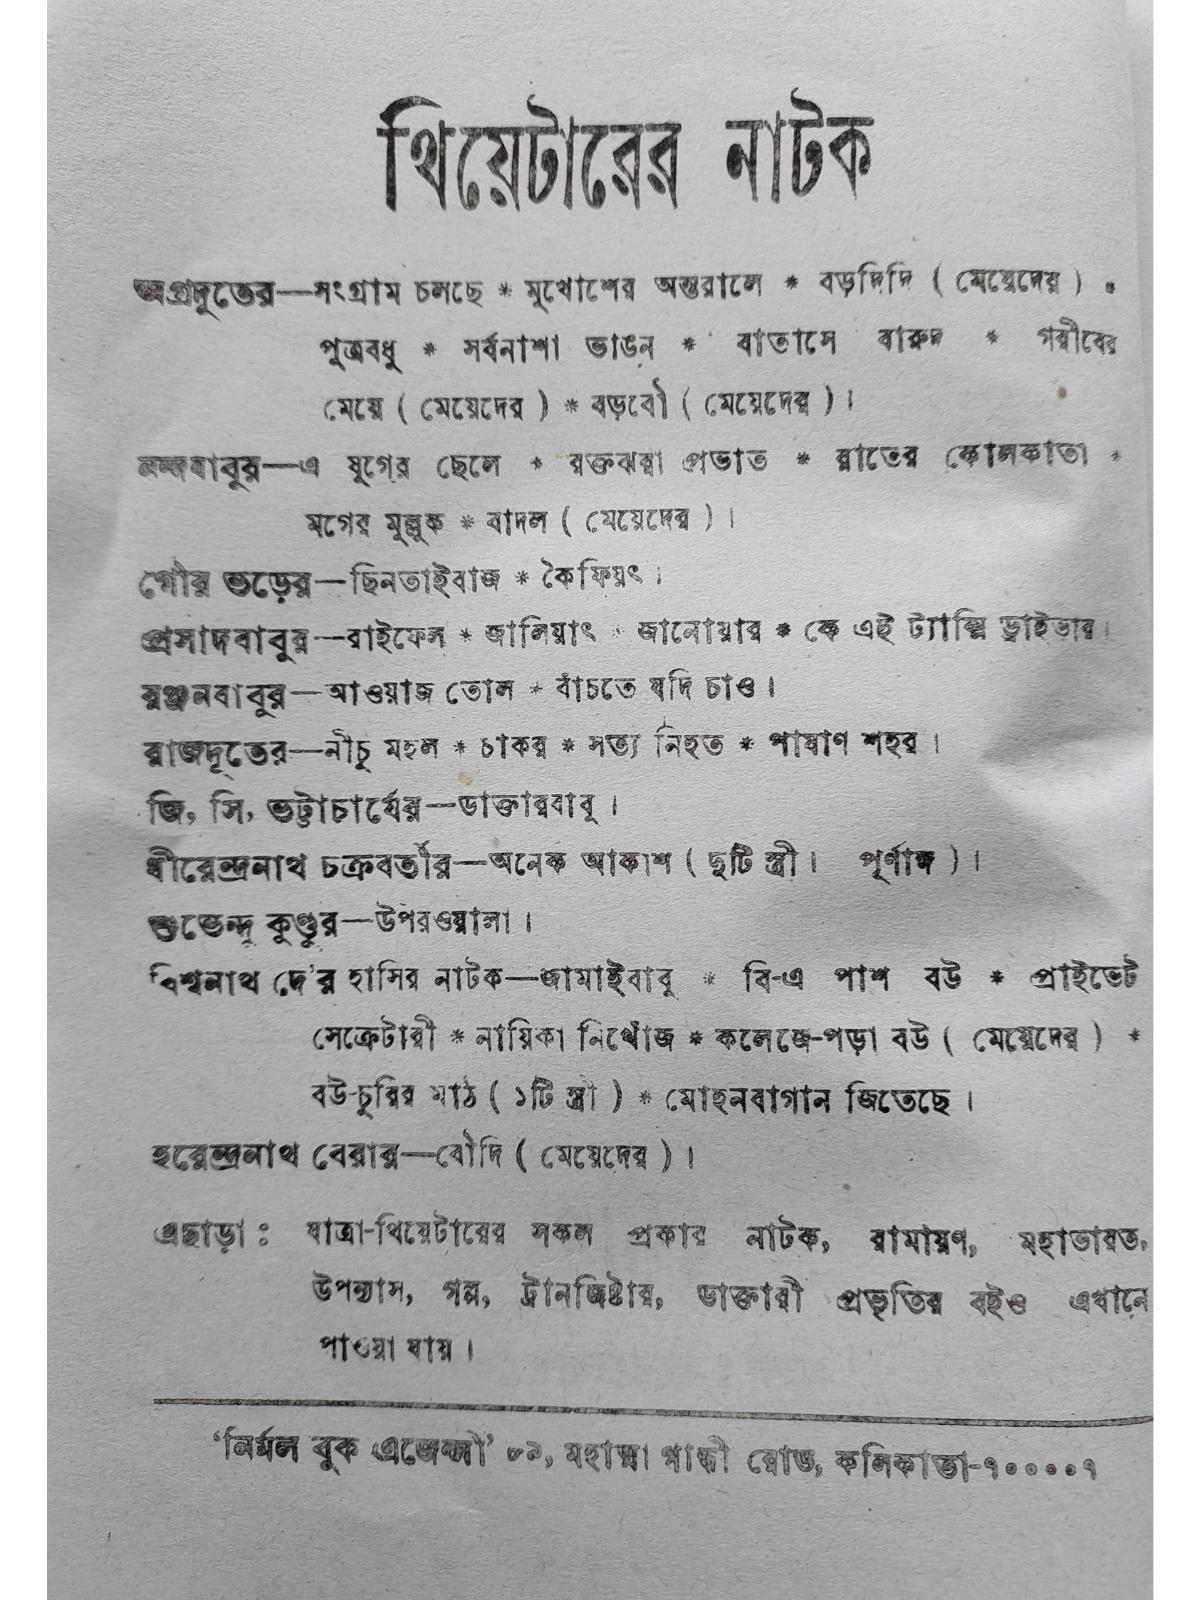 থিয়েটারের নাটক
অগ্রদূতের—সংগ্রাম চলছে * মুখোশের অন্তরালে * বড়দিদি ( মেয়েদের ) *
পুত্রবধু * সর্বনাশা ভাঙন * বাতাসে বারুদ * গরীবের
মেয়ে ( মেয়েদের ) * বড়বৌ ( মেয়েদের ) ।
নন্দবাবুর—এ যুগের ছেলে * রক্তঝরা প্রভাত * রাতের কোলকাতা *
মগের মুল্লুক * বাদল ( মেয়েদের ) ।
গৌর ভড়ের—ছিনতাইবাজ * কৈফিয়ৎ ।
প্রসাদবাবুর—রাইফেল * জালিয়াৎ * জানোয়ার * কে এই ট্যাক্সি ড্রাইভার ।
রঞ্জনবাবুর—আওয়াজ তোল * বাঁচতে যদি চাও ।
রাজদূতের—নীচু মহল * চাকর * সত্য নিহত * পাষাণ শহর ।
জি, সি, ভট্টাচার্যের—ডাক্তারবাবু ।
ধীরেন্দ্রনাথ চক্রবর্তীর—অনেক আকাশ ( দুটি স্ত্রী । পূর্ণাঙ্গ ) ।
শুভেন্দু কুণ্ডুর—উপরওয়ালা ।
বিশ্বনাথ দে'র হাসির নাটক—জামাইবাবু * বি-এ পাশ বউ * প্রাইভেট
সেক্রেটারী * নায়িকা নিখোঁজ * কলেজে-পড়া বউ ( মেয়েদের ) *
বউ-চুরির মাঠ ( ১টি স্ত্রী ) * মোহনবাগান জিতেছে ।
হরেন্দ্রনাথ বেরার—বৌদি ( মেয়েদের ) ।
এছাড়া : যাত্রা-থিয়েটারের সকল প্রকার নাটক, রামায়ণ, মহাভারত,
উপন্যাস, গল্প, ট্রানজিষ্টার, ডাক্তারী প্রভৃতির বইও এখানে
পাওয়া যায় ।
'নির্মল বুক এজেন্সী' ৮৯, মহাত্মা গান্ধী রোড, কলিকাতা-৭০০০০৭